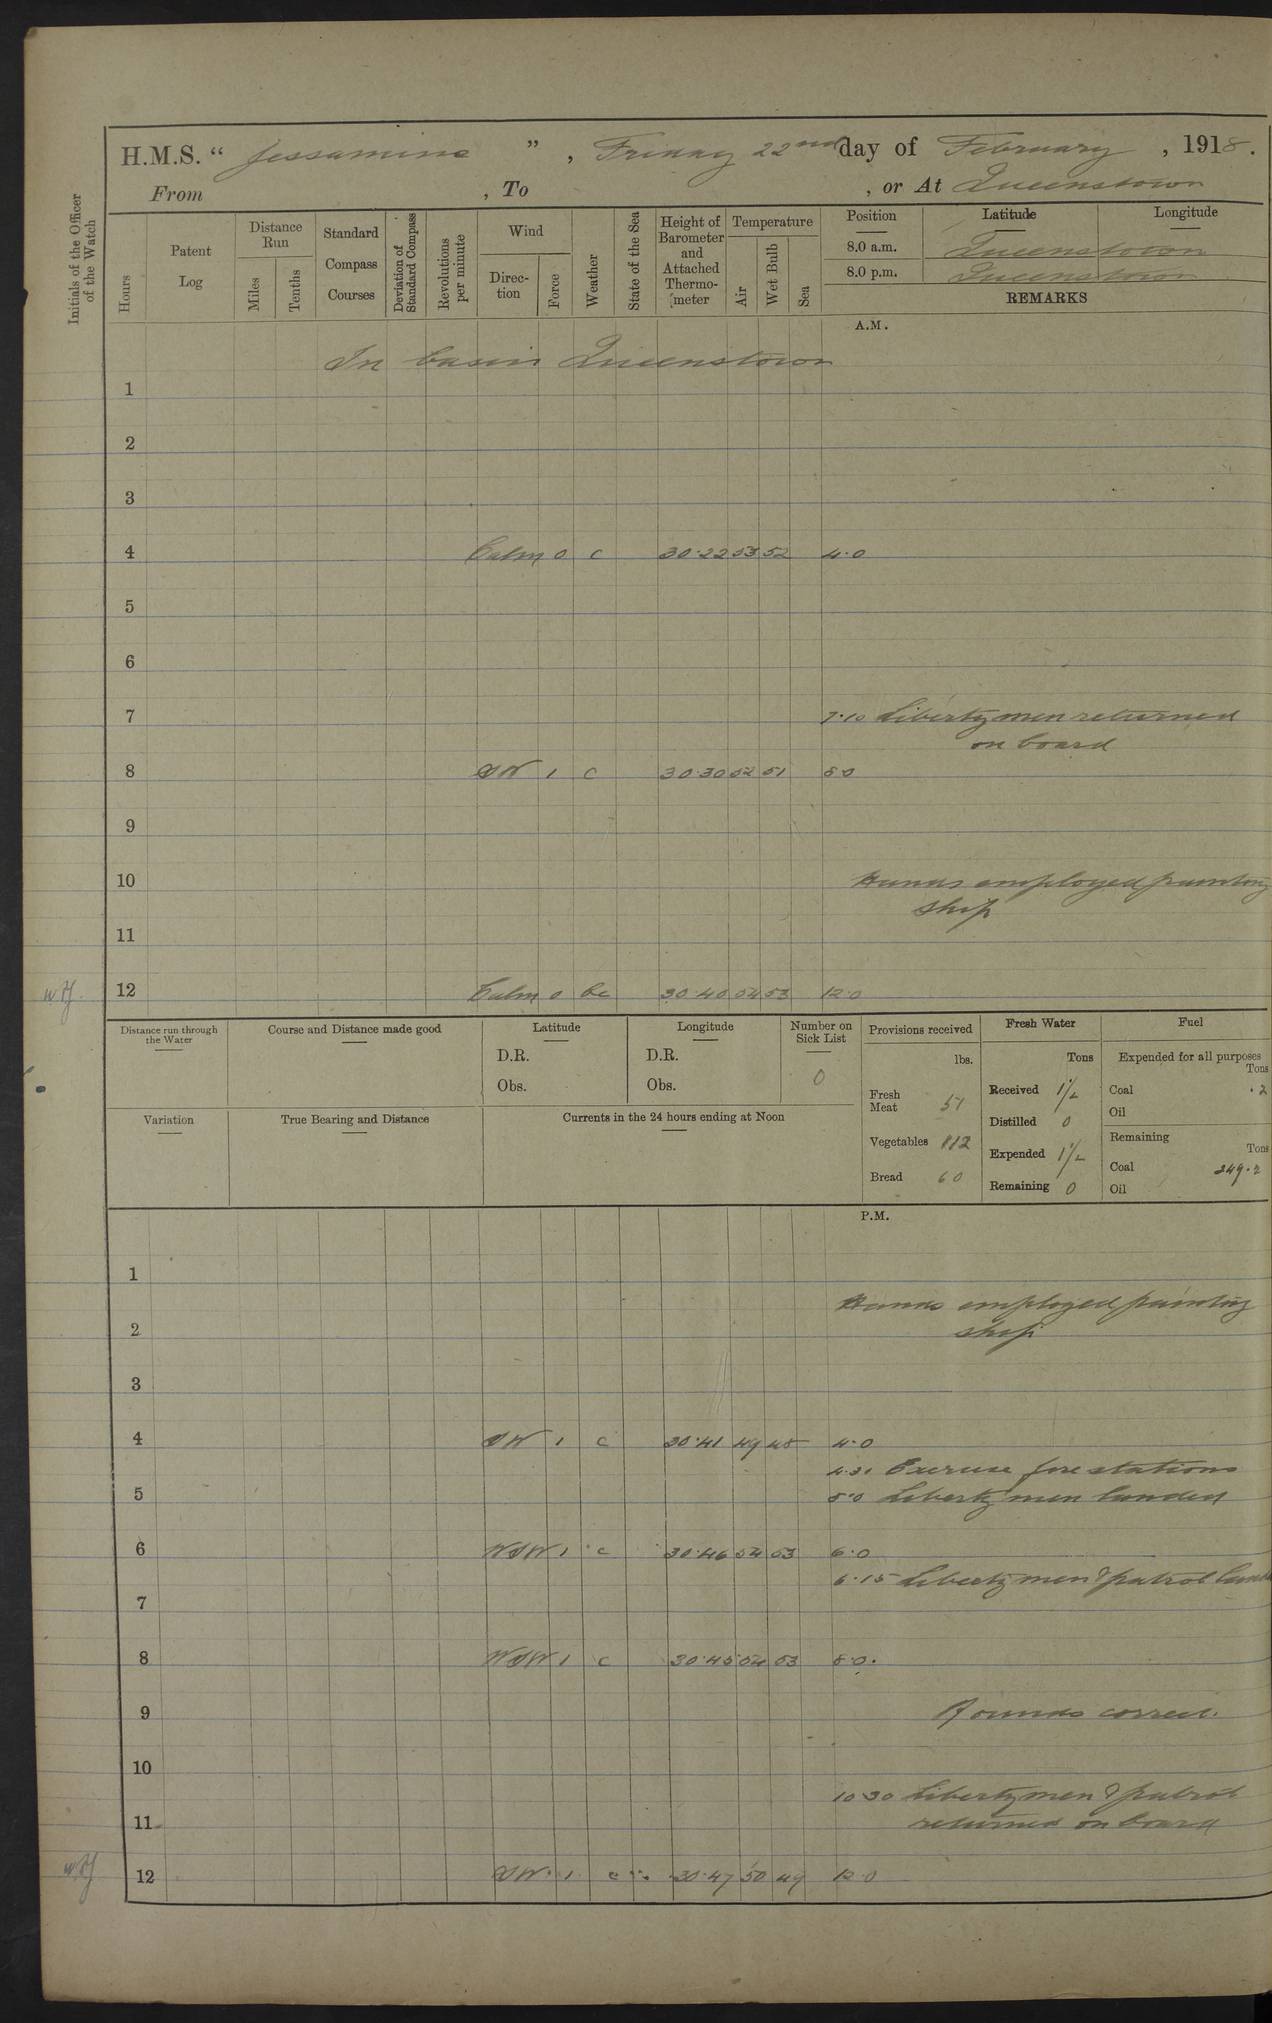 H.M.S. " Jessamine " , Friday 22nd day of February , 1918.
From , To , or At Queenstown
Initials of the Officer of the Watch
Hours
Patent Log
Distance Run
Miles
Tenths
Standard Compass Courses
Deviation of Standard Compass
Revolutions per minute
Wind
Direc-tion
Force
Weather
State of the Sea
Height of Barometer and Attached Thermo-meter
Temperature
Air
Wet Bulb
Sea
Position Latitude Longitude
8.0 a.m. Queenstown
8.0 p.m. Queenstown
REMARKS
A.M.
In basin Queenstown
1
2
3
4 Calm 0 c 30.22 53 52 4.0
5
6
7 7.10 Liberty men returned
on board
8 SW 1 c 30.30 52 51 8.0
9
10 Hands employed painting
ship
11
12 Calm 0 bc 30.40 54 53 12.0
Distance run through the Water
Course and Distance made good
Latitude
D.R.
Obs.
Longitude
D.R.
Obs.
Number on Sick List
0
Provisions received
lbs.
Fresh Meat 51
Vegetables 112
Bread 60
Fresh Water
Tons
Received 1½
Distilled 0
Expended 1½
Remaining 0
Fuel
Expended for all purposes
Tons
Coal .2
Oil
Remaining
Tons
Coal 249.2
Oil
Variation
True Bearing and Distance
Currents in the 24 hours ending at Noon
P.M.
1
Hands employed painting
2 ship
3
4 SW 1 c 30.41 49 48 4.0
4.30 Exercise fire stations
5 5.0 Liberty men landed
6 WSW 1 c 30.46 54 53 6.0
6.15 Liberty men & patrol
7
8 WSW 1 c 30.45 54 53 8.0.
9 Rounds correct.
10
10.30 Liberty men & patrol
11 returned on board
12 SW. 1 c 30.47 50 49 12.0